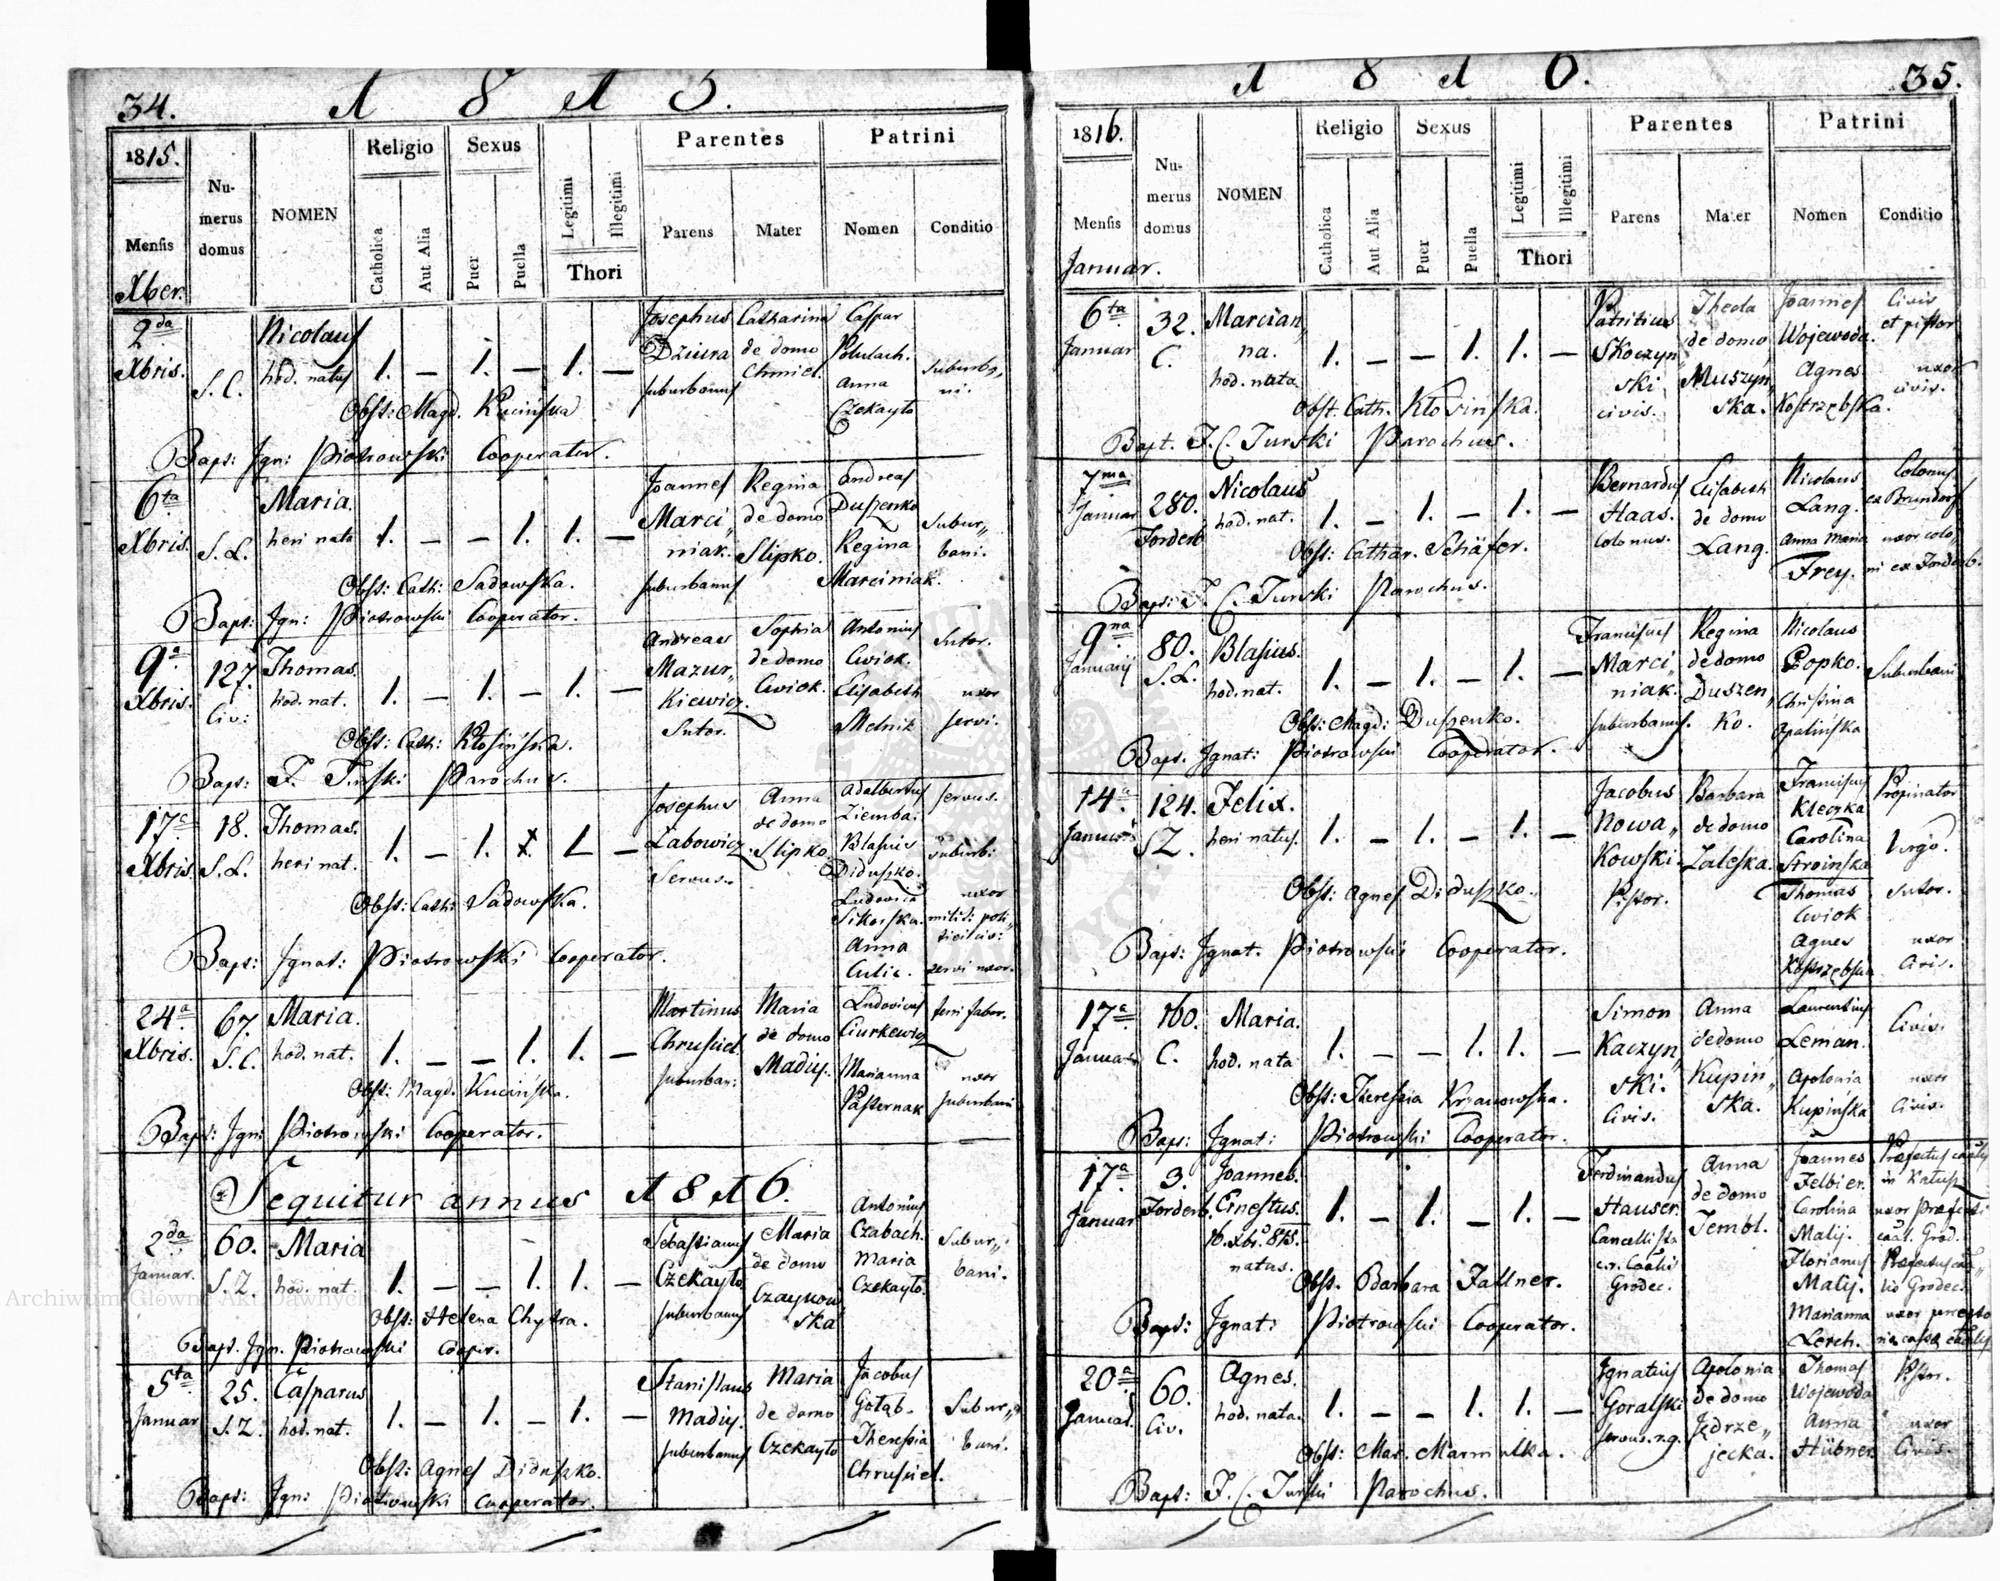 34.
1815.
1815.
Mensis
Xber.
Numerus domus
NOMEN
Religio
Catholica
Aut Alia
Sexus
Puer
Puella
Legitimi
Illegitimi
Thori
Parentes
Parens
Mater
Patrini
Nomen
Conditio
2da Xbris.
S. C.
Nicolaus
hod. natus
1. — 1. — 1. —
Josephus
Dziura
suburbanus
Catharina
de domo
Chmiel.
Caspar
Anna
Czekayło
Suburba„
ni.
Obst: Magd. Kucińska
Bapt: Ign: Piotrowski Cooperator.
6ta Xbris.
S. L.
Maria.
heri nata
1. — — 1. 1. —
Joannes
Marci„
niak.
suburbanus
Regina
de domo
Slipko.
Andreas
Duszenko
Regina
Marciniak.
Subur„
bani.
Obst: Cath: Sadowska.
Bapt: Ign: Piotrowski Cooperator.
9a Xbris.
127.
Civ:
Thomas.
hod. nat.
1. — 1. — 1. —
Andreas
Mazur„
kiewicz.
Sutor.
Sophia
de domo
Cwiok.
Antonius
Cwiok.
Elisabeth
Melnik
Sutor.
uxor
servi.
Obst: Cath: Kłosińska.
Bapt: F. Turski Parochus.
17a Xbris.
18.
S. L.
Thomas.
heri nat.
1. — 1. — 1. —
Josephus
Zabowicz.
Servus.
Anna
de domo
Slipko.
Adalbertus
Ziemba.
Blasius
Diduszko.
Ludovica
Sikorska.
Anna
Culic.
servus.
suburbi
uxor
servi uxor.
Obst: Cath: Sadowska.
Bapt: Ignat: Piotrowski Cooperator.
24a Xbris.
67.
S. C.
Maria.
hod. nat.
1. — — 1. 1. —
Martinus
Chrusciel.
suburban:
Maria
de domo
Madiy.
Ludovicus
Ciurkewicz
Marianna
Pasternak
ferri faber.
uxor
suburbani
Obst: Magd. Kucińska.
Bapt: Ign: Piotrowski Cooperator.
Sequitur annus 1816.
2da Januar.
60.
S. Z.
Maria
hod. nat.
1. — — 1. 1. —
Sebastianus
Czekayło
suburbanus
Maria
de domo
Czaykow
ska
Antonius
Czabach.
Maria
Czekayło.
Subur„
bani.
Obst: Helena Chytra.
Bapt. Ign. Piotrowski Cooper.
5ta Januar
25.
S. Z.
Casparus
hod. nat.
1. — 1. — 1. —
Stanislaus
Madiy.
suburbanus
Maria
de domo
Czekayło
Jacobus
Gołąb.
Theressia
Chrusciel.
Subur„
bani.
Obst: Agnes Diduszko.
Bapt: Ign: Piotrowski Cooperator.
1816.
35.
1816.
Mensis
Januar.
Numerus domus
NOMEN
Religio
Catholica
Aut Alia
Sexus
Puer
Puella
Legitimi
Illegitimi
Thori
Parentes
Parens
Mater
Patrini
Nomen
Conditio
6ta Januar
32.
C.
Marcian„
na.
hod. nata
1. — — 1. 1. —
Patritius
Skoczyn„
ski
civis.
Thecla
de domo
Muszyn„
ska.
Joannes
Wojewoda.
Agnes
Kostrzębska.
Civis
et pistor
uxor
civis.
Obst. Cath. Kłosinska.
Bapt. F. C. Turski Parochus.
7ma Januar
280.
Forderb
Nicolaus
hod. nat.
1. — 1. — 1. —
Bernardus
Haas.
colonus.
Elisabeth
de domo
Lang.
Nicolaus
Lang.
Anna Maria
Frey.
Colonus
ex Brundorf
uxor colo„
ni ex Forderb.
Obst: Cathar. Schäfer.
Bapt: F. C. Turski Parochus.
9na Januarij
80.
S. L.
Blasius.
hod. nat.
1. — 1. — 1. —
Franciscus
Marci„
niak.
suburbanus.
Regina
de domo
Duszen„
ko.
Nicolaus
Popko.
Christina
Opalińska
Suburbani
Obst: Magd: Duszenko.
Bapt. Ignat: Piotrowski Cooperator.
14a Januar
124.
SZ.
Felix.
heri natus.
1. — 1. — 1. —
Jacobus
Nowa„
kowski.
Pistor.
Barbara
de domo
Zaleska.
Franciscus
Kleczka
Carolina
Stroińska
Thomas
Cwiok
Agnes
Kostrzębska
Propinator
Virgo.
Sutor.
uxor
Civis.
Obst: Agnes Diduszko.
Bapt: Ignat. Piotrowski Cooperator.
17a Januar
160.
C.
Maria.
hod. nata
1. — — 1. 1. —
Simon
Kaczyn„
ski.
Civis.
Anna
de domo
Kupin„
ska.
Laurentius
Leman.
Apolonia
Kupińska
Civis.
uxor
Civis.
Obst: Theressia Krzanowska.
Bapt: Ignat: Piotrowski Cooperator.
17a Januar
3.
Forderb.
Joannes.
Ernestus.
16. Xbr. 815.
natus.
1. — 1. — 1. —
Ferdinandus
Hauser.
Cancellista
Grodec.
Anna
de domo
Tembl.
Joannes
Felbier.
Carolina
Malij.
Florianus
Malij.
Marianna
Lerch.
Præfectus
in Kałusz
uxor Præfecti
Grod.
Grodec.
Obst. Barbara Fallner.
Bapt: Ignat: Piotrowski Cooperator.
20a Januar.
60.
Civ.
Agnes.
hod. nata.
1. — — 1. 1. —
Ignatius
Goralski
servus r.g.
Apolonia
de domo
Jędrze„
jecka.
Thomas
Wojewoda
Anna
Hübner
Pistor.
uxor
Civis.
Obst: Mar. Marmulka.
Bapt: F. C. Turski Parochus.
Archiwum Główne Akt Dawnych